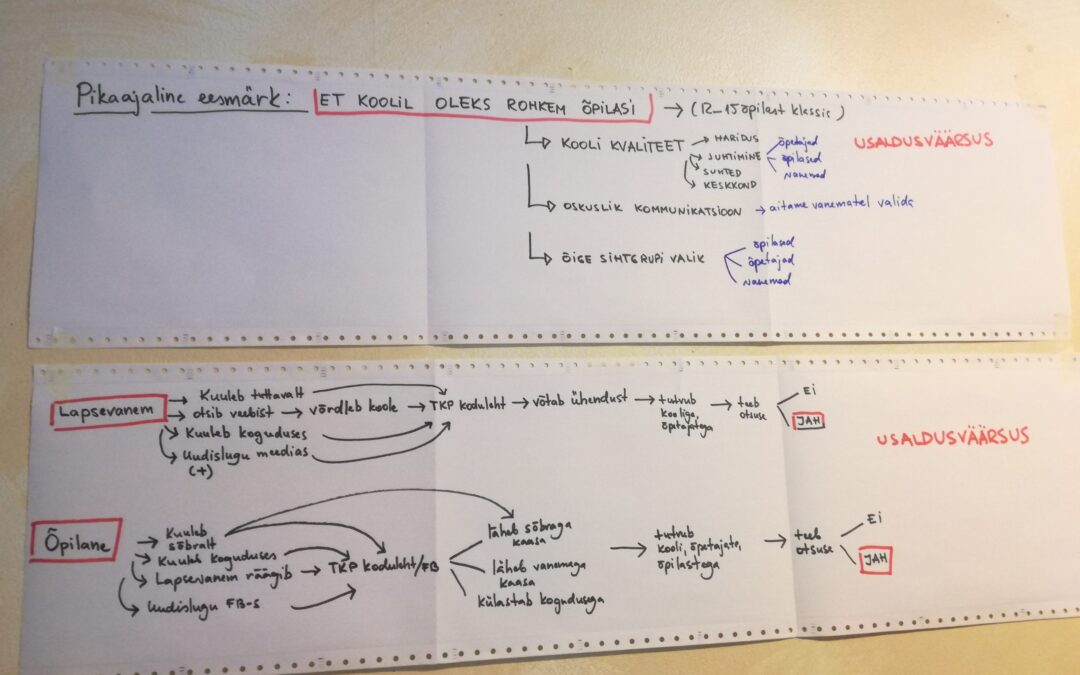 Pikaajaline eesmärk: ET KOOLIL OLEKS ROHKEM ÕPILASI → (12-15 õpilast klassis)
KOOLI KVALITEET → HARIDUS
JUHTIMINE
SUHTED
KESKKOND
õpetajad
õpilased
vanemad
USALDUSVÄÄRSUS
OSKUSLIK KOMMUNIKATSIOON → aitame vanematel valida
ÕIGE SIHTGRUPI VALIK
õpilased
õpetajad
vanemad
Lapsevanem
Kuuleb tuttavalt
otsib veebist → võrdleb koole → TKP koduleht → võtab ühendust → tutvub
koolige,
õpetajatega
→ teeb
otsuse
Ei
JAH
Kuuleb koguduses
Uudislugu meedias
(+)
USALDUSVÄÄRSUS
Õpilane
Kuuleb
sõbralt
Kuuleb koguduses
Lapsevanem räägib → TKP koduleht/FB
Uudislugu FB-s
läheb sõbraga
kaasa
läheb vanemaga
kaasa
külastab kogudusega
tutvub
kooli, õpetajate,
õpilastega
teeb
otsuse
Ei
JAH